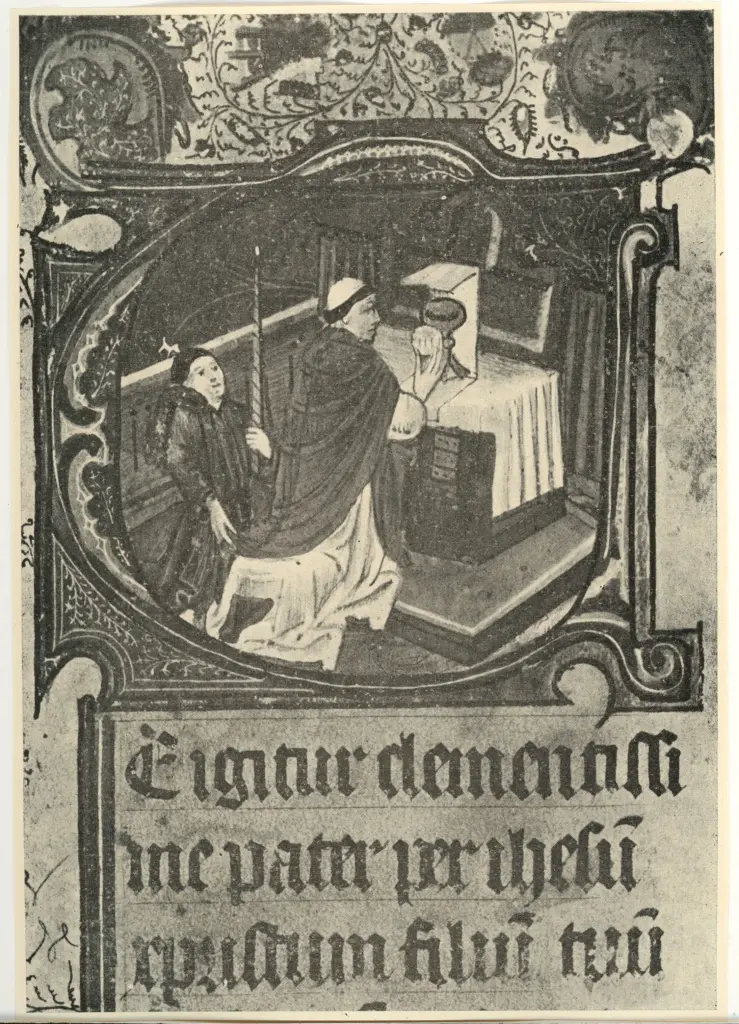 E igitur clementissi
me pater per ihesū
xpristum filiū tuū